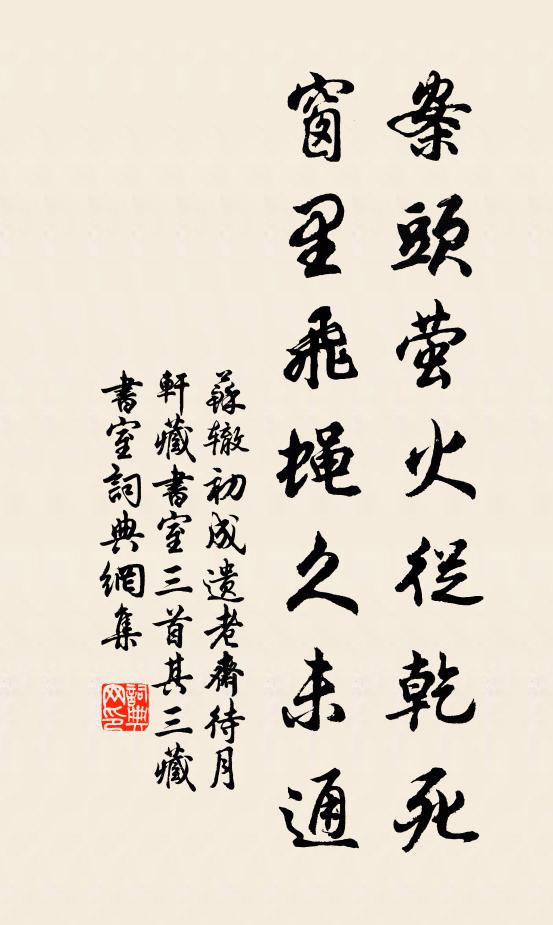 案頭萤火從乾死
窗里飛蝇久未通
蘇辙初成遺老齋待月
軒藏書室三首其三藏
書室詞典網集
詞典网印